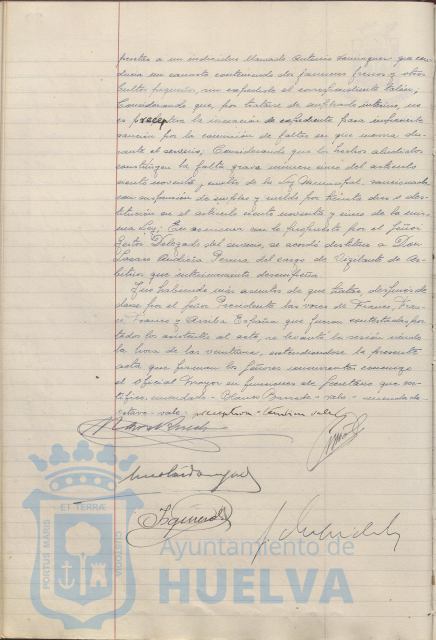 a un individuo llamado Antonio que con
ducia un canasto conteniendo dos jamones frescos y otros
bultos pequeños, sin expedirle el correspondiente talón;
Considerando que, por tratarse de empleado interino, no
es preceptiva la incoación de expediente para imponerle
sanción por la comisión de faltas en que incurra du-
rante el servicio; Considerando que los hechos aludidos
constituyen la falta grave número cinco del artículo
ciento noventa y de la Ley Municipal, sancionada
con suspensión de empleo y sueldo por treinta dias o des-
titución en el artículo ciento noventa y cinco de la mis-
ma Ley; En armonia con lo propuesto por el Señor
Gestor Delegado del servicio, se acordó destituir a Don
Lazaro Pereira del cargo de Vigilante de Ar-
bitrios que interinamente desempeña.
Y no habiendo más asuntos de que tratar, despues de
darse por el Señor Presidente las voces de Franco, Fran-
co, Franco y Arriba España que fueron contestadas por
todos los asistentes al acto, se levantó la sesión siendo
la hora de las veintiuna, extendiendose la presente
acta que firman los Señores concurrentes conmigo
el Oficial Mayor en funciones de Secretario que cer-
tifico, enmendado - Blanco - vale - enmendado
vale - preceptiva - también vale
ET TERRAE
PORTUS MARIS
CUSTODIA
Ayuntamiento de
HUELVA